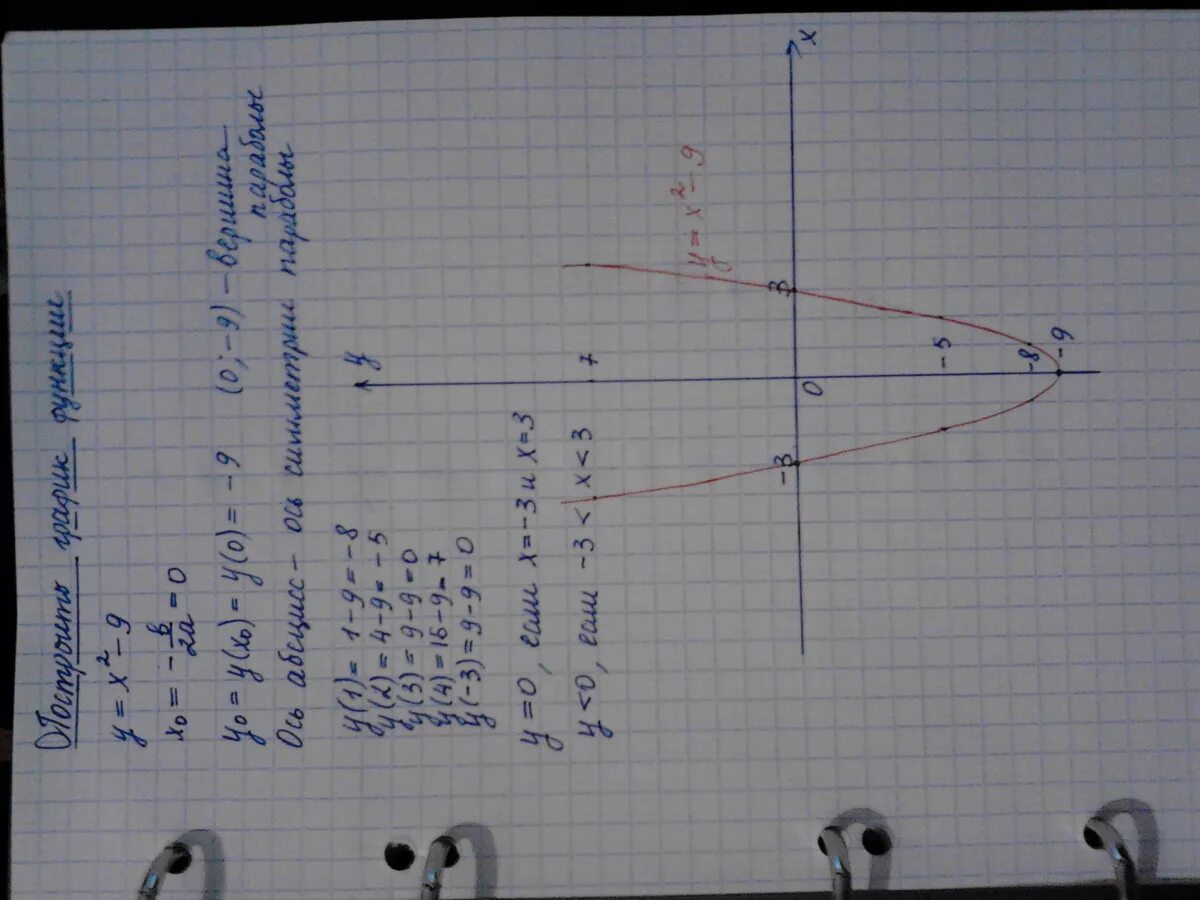 Построить график функции
y = x² - 9
x₀ = - b/2a = 0
y₀ = y(x₀) = y(0) = -9 (0; -9) - вершина
параболы
Ось абсцисс - ось симметрии параболы
y(1) = 1-9 = -8
y(2) = 4-9 = -5
y(3) = 9-9 = 0
y(4) = 16-9 = 7
y(-3) = 9-9 = 0
y = 0, если x = -3 и x = 3
y < 0, если -3 < x < 3
y
7
y = x² - 9
-3
3
x
0
-5
-8
-9